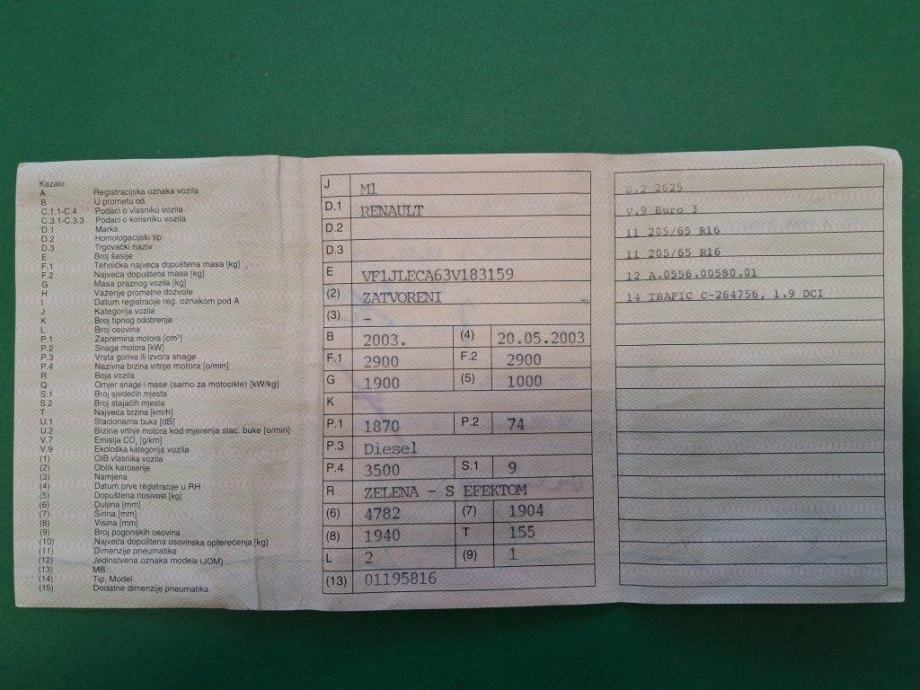 Kazalo:
A Registracijska oznaka vozila
B U prometu od
C.1.1-C.4 Podaci o vlasniku vozila
C.3.1-C.3.3 Podaci o korisniku vozila
D.1 Marka
D.2 Homologacijski tip
D.3 Trgovački naziv
E Broj šasije
F.1 Tehnička najveća dopuštena masa [kg]
F.2 Najveća dopuštena masa [kg]
G Masa praznog vozila [kg]
H Važenje prometne dozvole
I Datum registracije reg. oznakom pod A
J Kategorija vozila
K Broj tipnog odobrenja
L Broj osovina
P.1 Zapremina motora [cm³]
P.2 Snaga motora [kW]
P.3 Vrsta goriva ili izvora snage
P.4 Nazivna brzina vrtnje motora [o/min]
R Boja vozila
Q Omjer snage i mase (samo za motocikle) [kW/kg]
S.1 Broj sjedećih mjesta
S.2 Broj stajaćih mjesta
T Najveća brzina [km/h]
U.1 Stacionarna buka [dB]
U.2 Brzina vrtnje motora kod mjerenja stac. buke [o/min]
V.7 Emisija CO₂ [g/km]
V.9 Ekološka kategorija vozila
(1) OIB vlasnika vozila
(2) Oblik karoserije
(3) Namjena
(4) Datum prve registracije u RH
(5) Dopuštena nosivost [kg]
(6) Duljina [mm]
(7) Širina [mm]
(8) Visina [mm]
(9) Broj pogonskih osovina
(10) Najveća dopuštena osovinska opterećenja [kg]
(11) Dimenzije pneumatika
(12) Jedinstvena oznaka modela (JOM)
(13) MB
(14) Tip, Model
(15) Dodatne dimenzije pneumatika
J M1
D.1 RENAULT
D.2
D.3
E VF1JLECA63V183159
(2) ZATVORENI
(3) –
B 2003. (4) 20.05.2003
F.1 2900 F.2 2900
G 1900 (5) 1000
K
P.1 1870 P.2 74
P.3 Diesel
P.4 3500 S.1 9
R ZELENA - S EFEKTOM
(6) 4782 (7) 1904
(8) 1940 T 155
L 2 (9) 1
(13) 01195816
2625
V.9 Euro 3
11 205/65 R16
11 205/65 R16
12 A.0556.00580.01
14 TRAFIC C-264756, 1.9 DCI